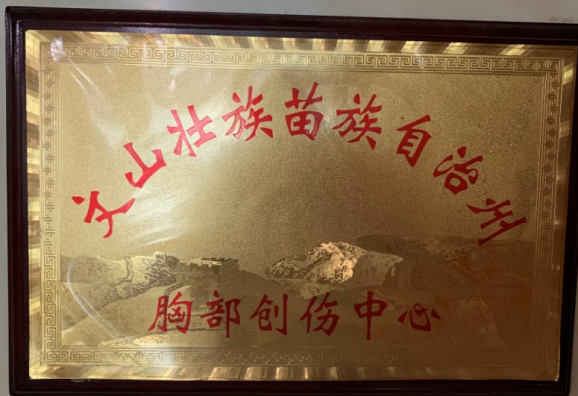 文山壮族苗族自治州
胸部创伤中心